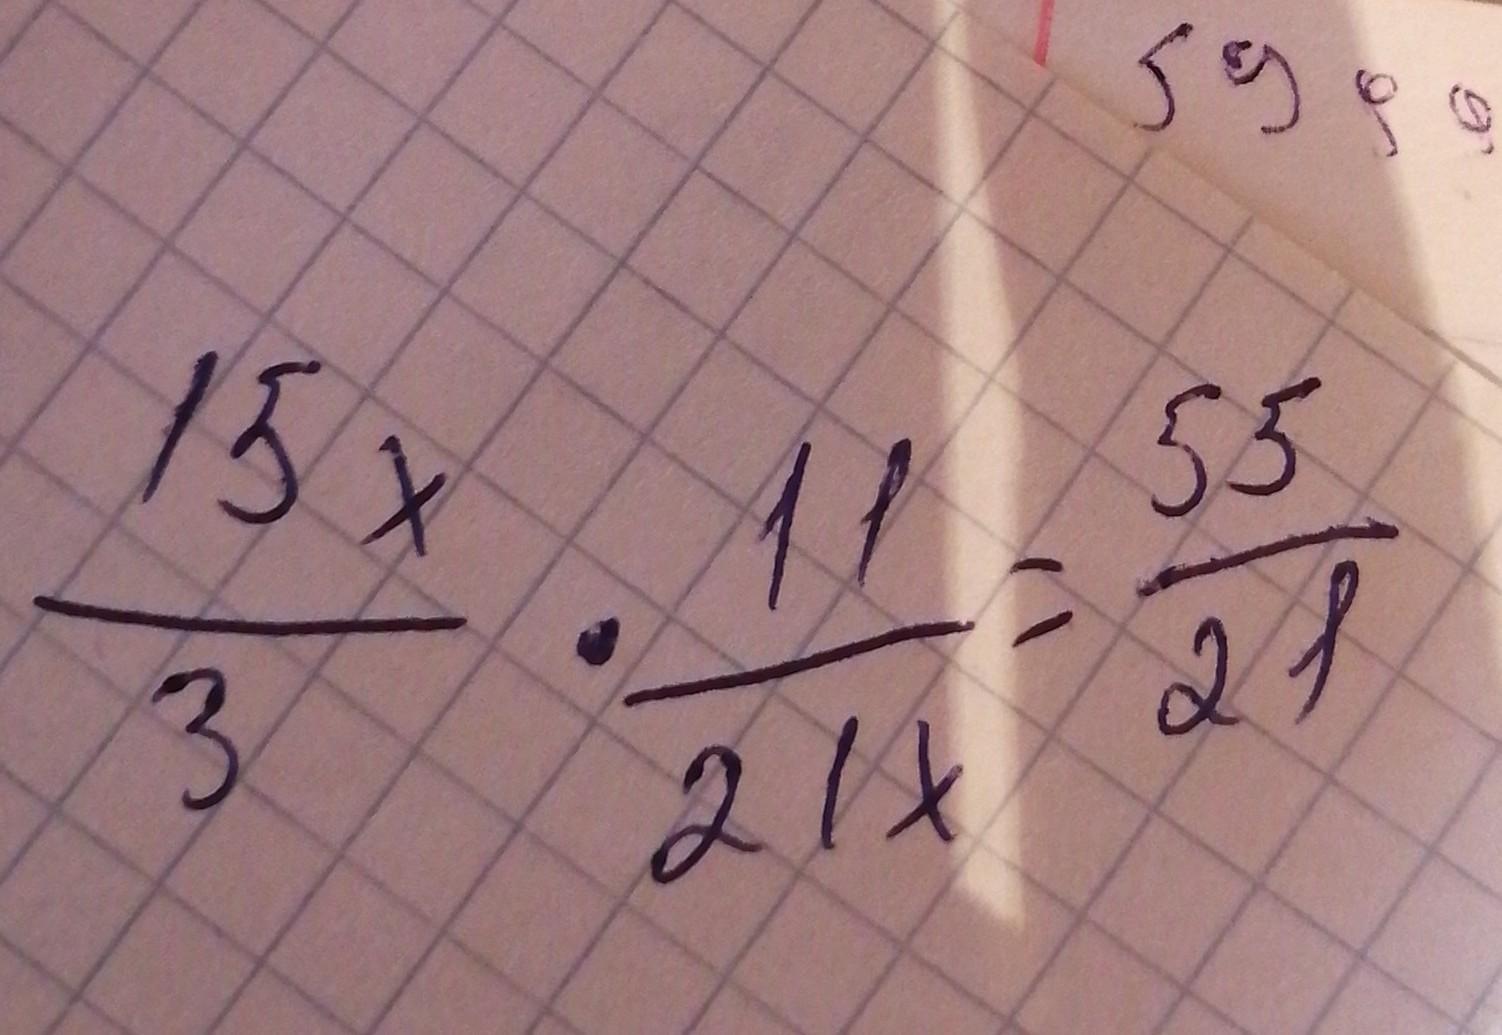 59 9 9
15x/3 · 11/21x = 55/21